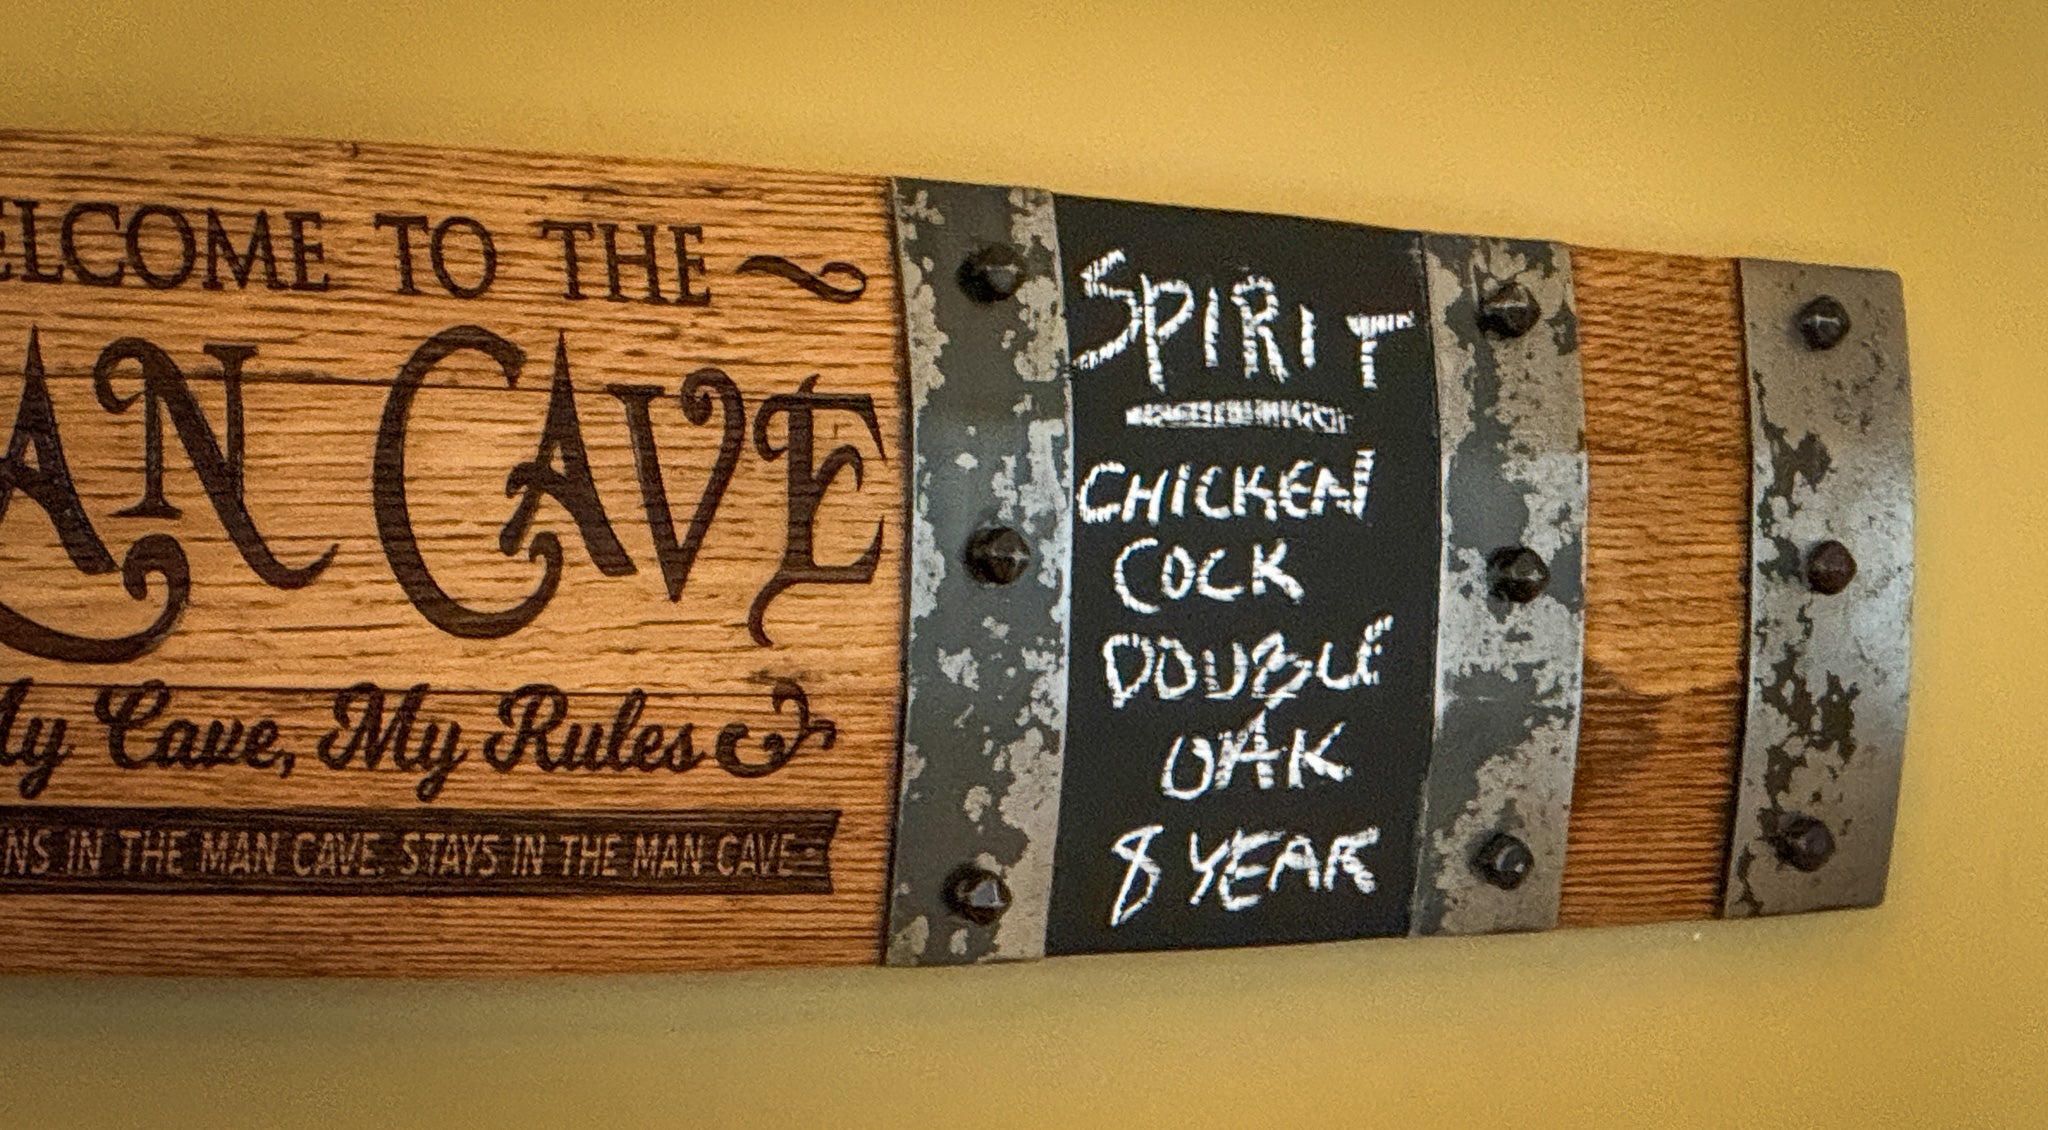 ELCOME TO THE
AN CAVE
My Cave, My Rules
NS IN THE MAN CAVE, STAYS IN THE MAN CAVE
SPIRIT
CHICKEN
COCK
DOUBLE
OAK
8 YEAR